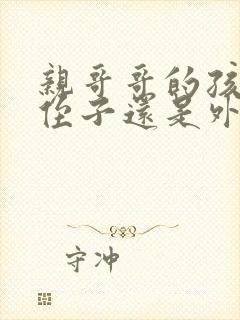 親哥哥的孩
侄子還是外
守冲